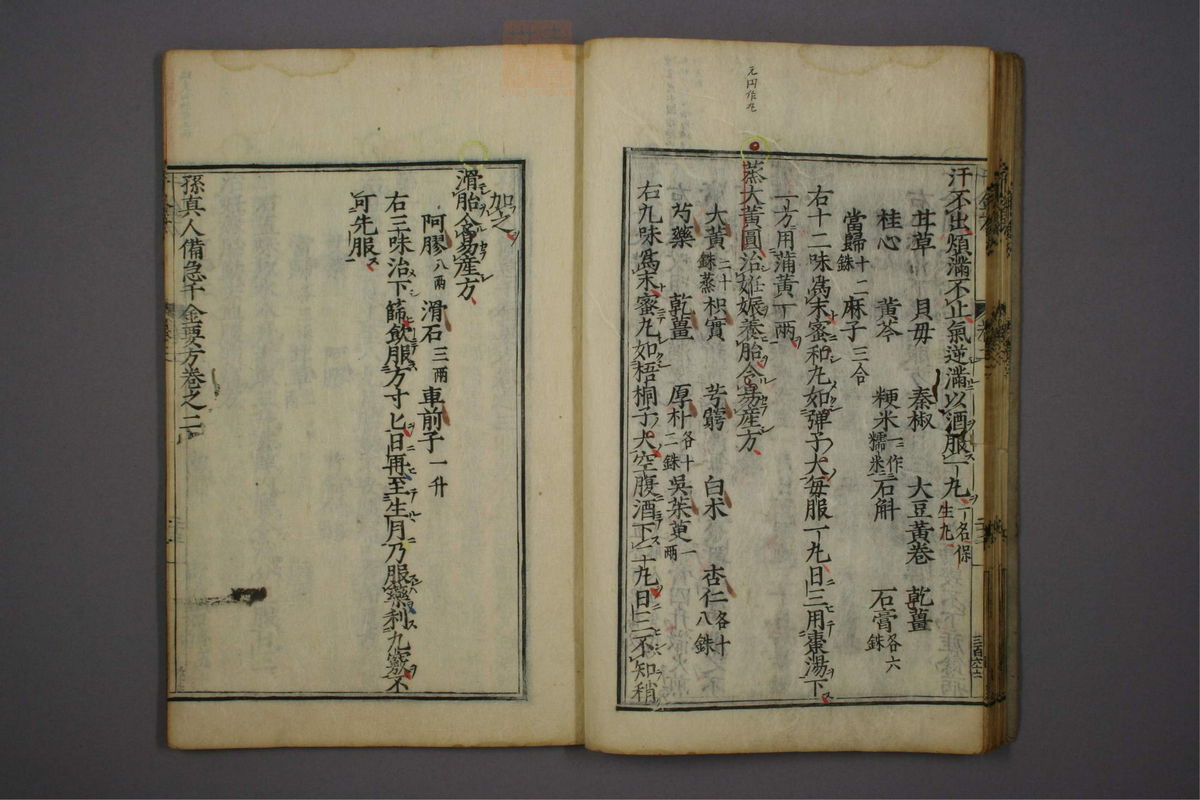 元円作丸
汗不出煩滿不止氣逆滿以酒服一丸一名保生丸
甘草 貝母 秦椒 大豆黃卷 乾薑
桂心 黃芩 粳米一作糯米 石斛 石膏各六銖
當歸十二銖 麻子三合
右十二味爲末蜜和丸如彈子大每服一丸日三用棗湯下
一方用蒲黃一兩
蒸大黃圓治姙娠養胎令易産方
大黃二十銖蒸 枳實 芎藭 白朮 杏仁各十八銖
芍藥 乾薑 厚朴各十二銖 吳茱萸一兩
右九味爲末蜜丸如梧桐子大空腹酒下二丸日三不知稍
加之
滑胎令易産方
阿膠八兩 滑石三兩 車前子一升
右三味治下篩飲服方寸匕日再至生月乃服藥利九竅不
可先服
孫真人備急千金要方卷之二